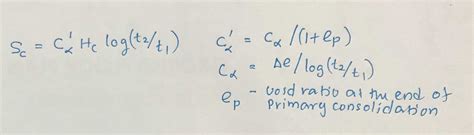 S_c = C'_α H_c log(t_2/t_1)
C'_α = C_α /(1+e_p)
C_α = Δe/log(t_2/t_1)
e_p - void ratio at the end of
primary consolidation